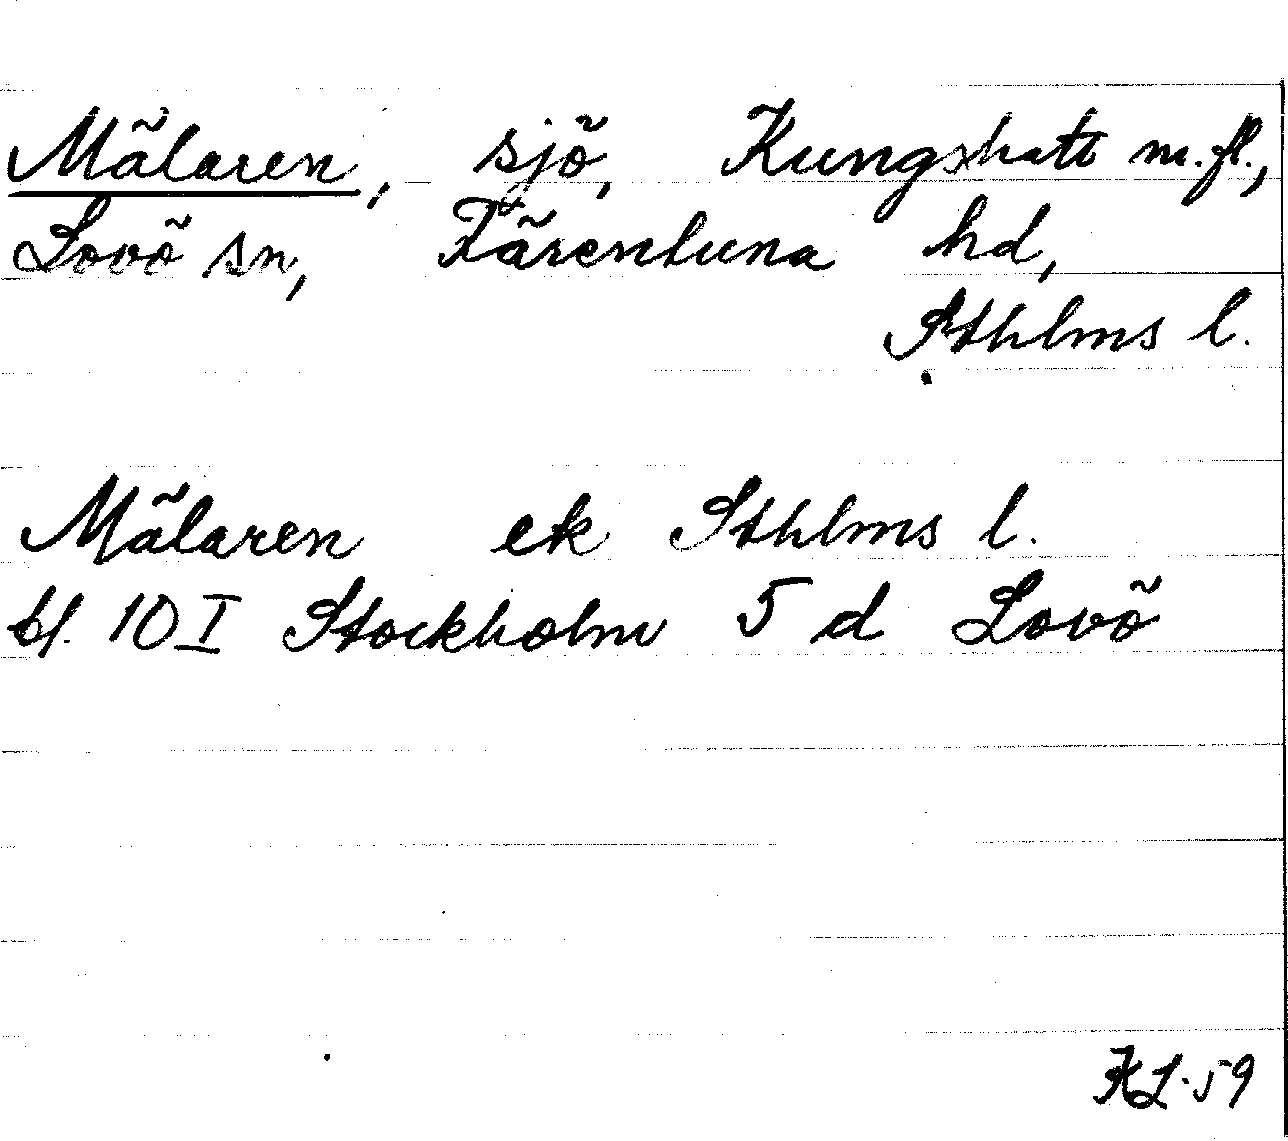 Mälaren, sjö, Kungshatt m.fl.,
Lovö sn, Färentuna hd,
Sthlms l.
Mälaren ek Sthlms l.
bl. 10 I Stockholm 5 d Lovö
KL.59